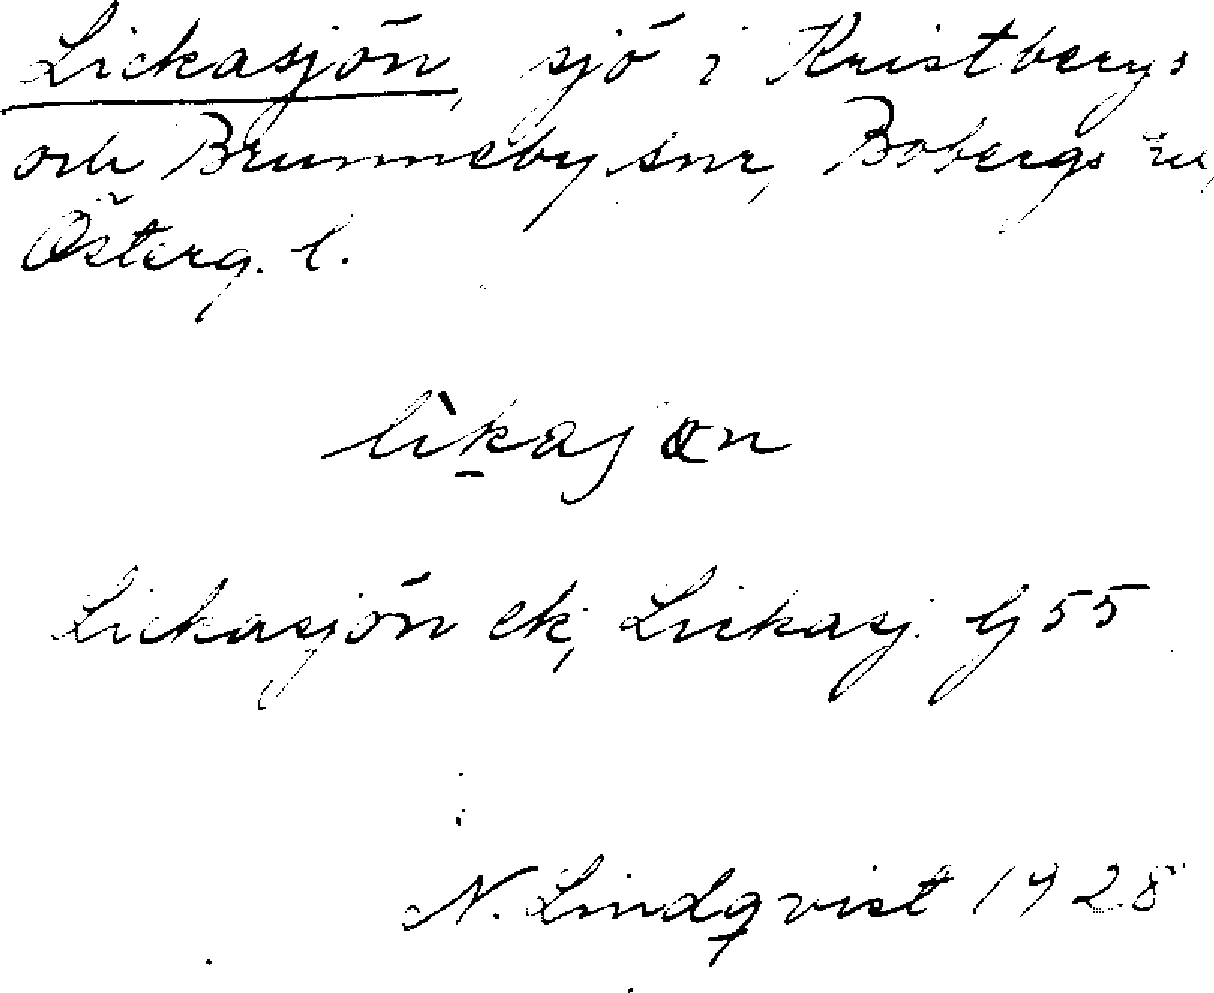 Lickasjön, sjö i Kristbergs
och Brunneby snr, Bobergs
Österg. l.
lìkasjön
Lickasjön ek, Lickasj. G 55
N. Lindqvist 1928